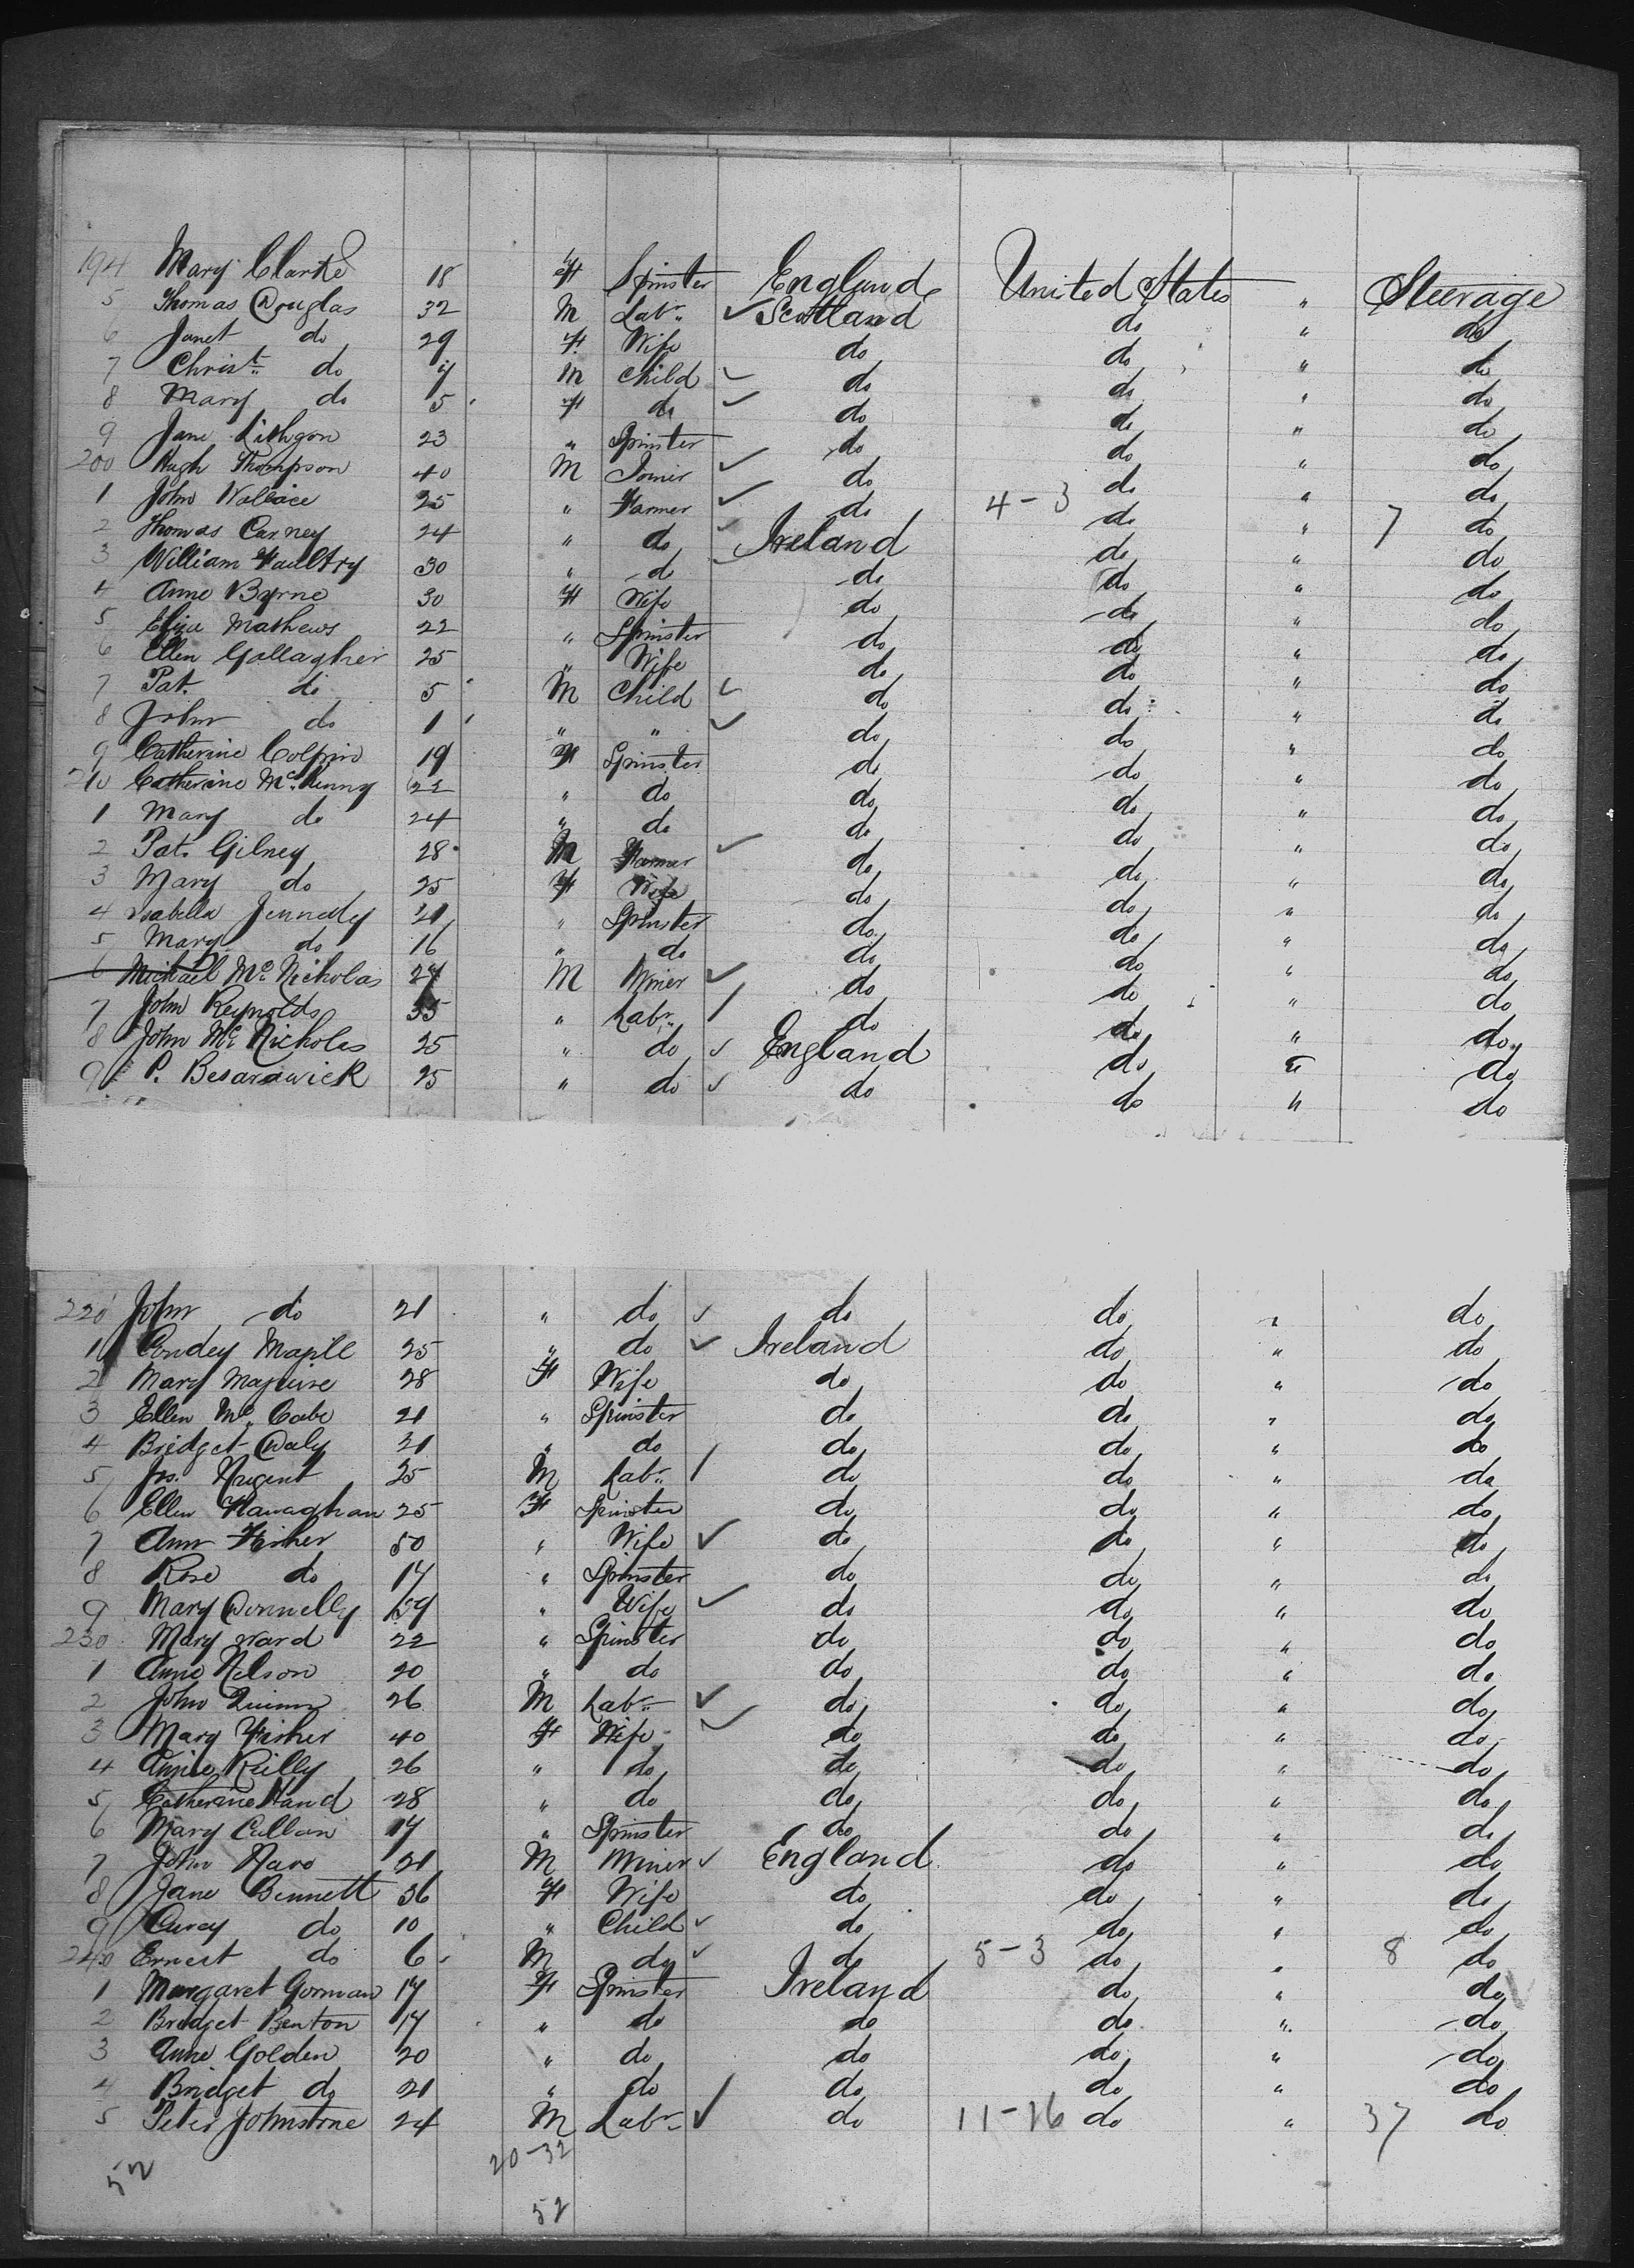 194 Mary Clarke 18 F Spinster England United States " Steerage
5 Thomas Douglas 32 M Labr. ✓ Scotland do " do
6 Janet do 29 F Wife do do " do
7 Christ. do 7 M Child ✓ do do " do
8 Mary do 5 F do ✓ do do " do
9 Jane Lithgon 23 " Spinster do do " do
200 Hugh Thompson 40 M Joiner ✓ do do " do
1 John Wallace 25 " Farmer ✓ do 4-3 do " 7 do
2 Thomas Carney 24 " do ✓ Ireland do " do
3 William Faultry 30 " do do do " do
4 Anne Byrne 30 F Wife do do " do
5 Eliza Mathews 22 " Spinster do do " do
6 Ellen Gallagher 25 " Wife do do " do
7 Pat. do 5 M Child ✓ do do " do
8 John do 1 " " ✓ do do " do
9 Catherine 19 F Spinster do do " do
210 Catherine McKenny 22 " do do do " do
1 Mary do 24 " do do do " do
2 Pat. Gilney 28 M Farmer ✓ do do " do
3 Mary do 25 F Wife do do " do
4 Isabella Jennedy 21 " Spinster do do " do
5 Mary do 16 " do do do " do
6 Michael McNicholas 27 M Miner ✓ do do " do
7 John Reynolds 35 " Labr. / do do " do
8 John McNicholas 25 " do ✓ England do " do
9 P. 25 " do ✓ do do " do
220 John do 21 " do ✓ do do " do
1 25 " do ✓ Ireland do " do
2 Mary Maguire 28 F Wife do do " do
3 Ellen McCabe 21 " Spinster do do " do
4 Bridget Daly 21 " do do do " do
5 Jas. Nugent 25 M Labr. / do do " do
6 Ellen Flanaghan 25 F Spinster do do " do
7 Ann Fisher 50 " Wife ✓ do do " do
8 Rose do 17 " Spinster do do " do
9 Mary Donnelly 59 " Wife ✓ do do " do
230 Mary Ward 22 " Spinster do do " do
1 Anne Nelson 20 " do do do " do
2 John Quinn 26 M Labr. ✓ do do " do
3 Mary Fisher 40 F Wife ✓ do do " do
4 Annie Reilly 26 " do do do " do
5 Catherine Hand 28 " do do do " do
6 Mary Callan 17 " Spinster do do " do
7 John 21 M Miner ✓ England do " do
8 Jane Bennett 36 F Wife do do " do
9 do 10 " Child ✓ do do " do
240 Ernest do 6 M do ✓ do 5-3 do " 8 do
1 Margaret Gorman 17 F Spinster Ireland do " do
2 Bridget Benton 17 " do do do " do
3 Anne Golden 20 " do do do " do
4 Bridget do 21 " do do do " do
5 Peter Johnstone 24 M Labr. ✓ do 11-26 do " 37 do
52 20-32
52